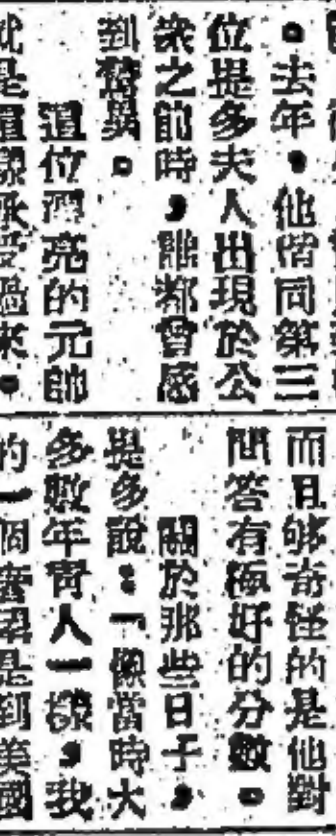 。去年,他偕同第三
位提多夫人出現於公
衆之前時,誰都會感
到驚異。
這位漂亮的元帥
就是這樣承受過來。
而且够奇怪的是他對
問答有極好的分數。
關於那些日子,
提多說:「像當時大
多數年青人一樣,我
的一個希望是到美國